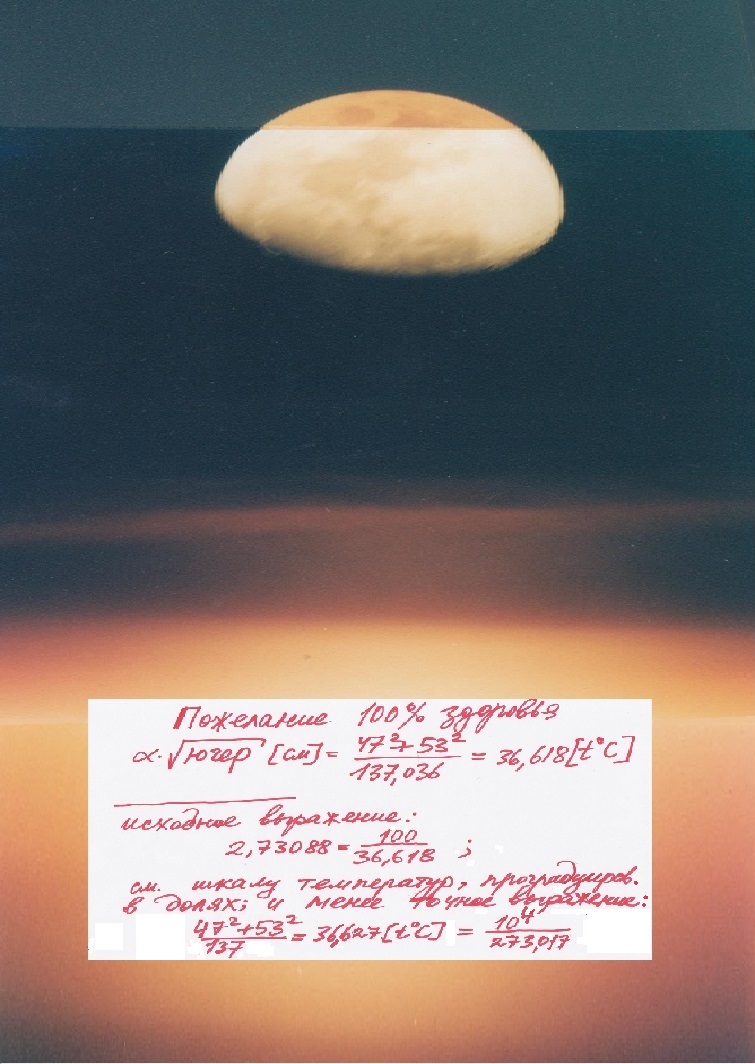 Пожелание 100% здоровья
α·√югер [см] = 47²+53² / 137,036 = 36,618[t°C]
исходное выражение:
2,73088 = 100 / 36,618 ;
см. шкалу температур, проградуиров.
в долях; и менее точное выражение:
47²+53² / 137 = 36,627[t°C] = 10⁴ / 273,017